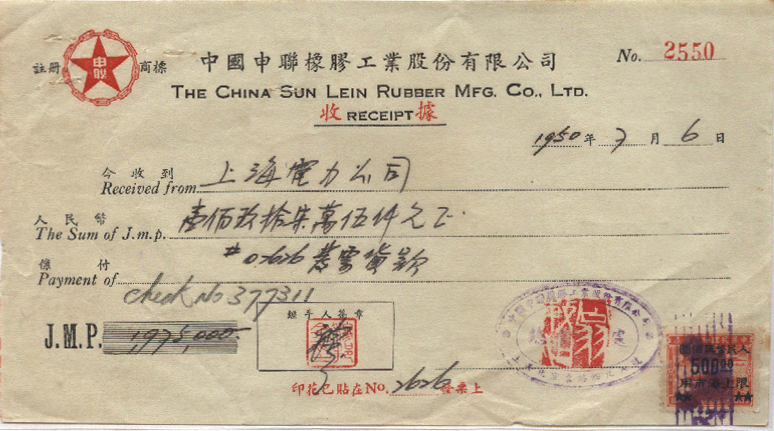 註冊 申聯 商標
中國申聯橡膠工業股份有限公司
No. 2550
THE CHINA SUN LEIN RUBBER MFG. CO., LTD.
收 RECEIPT 據
1950年7月6日
今收到
Received from 上海電力公司
人民幣
The Sum of J.m.p. 壹佰玖拾柒萬伍仟元正
償付
Payment of 貨款
check No 377311
經手人簽章
J.M.P. 1,975,000
印花已貼在No. 2626 發票上
500.00
限上海市用